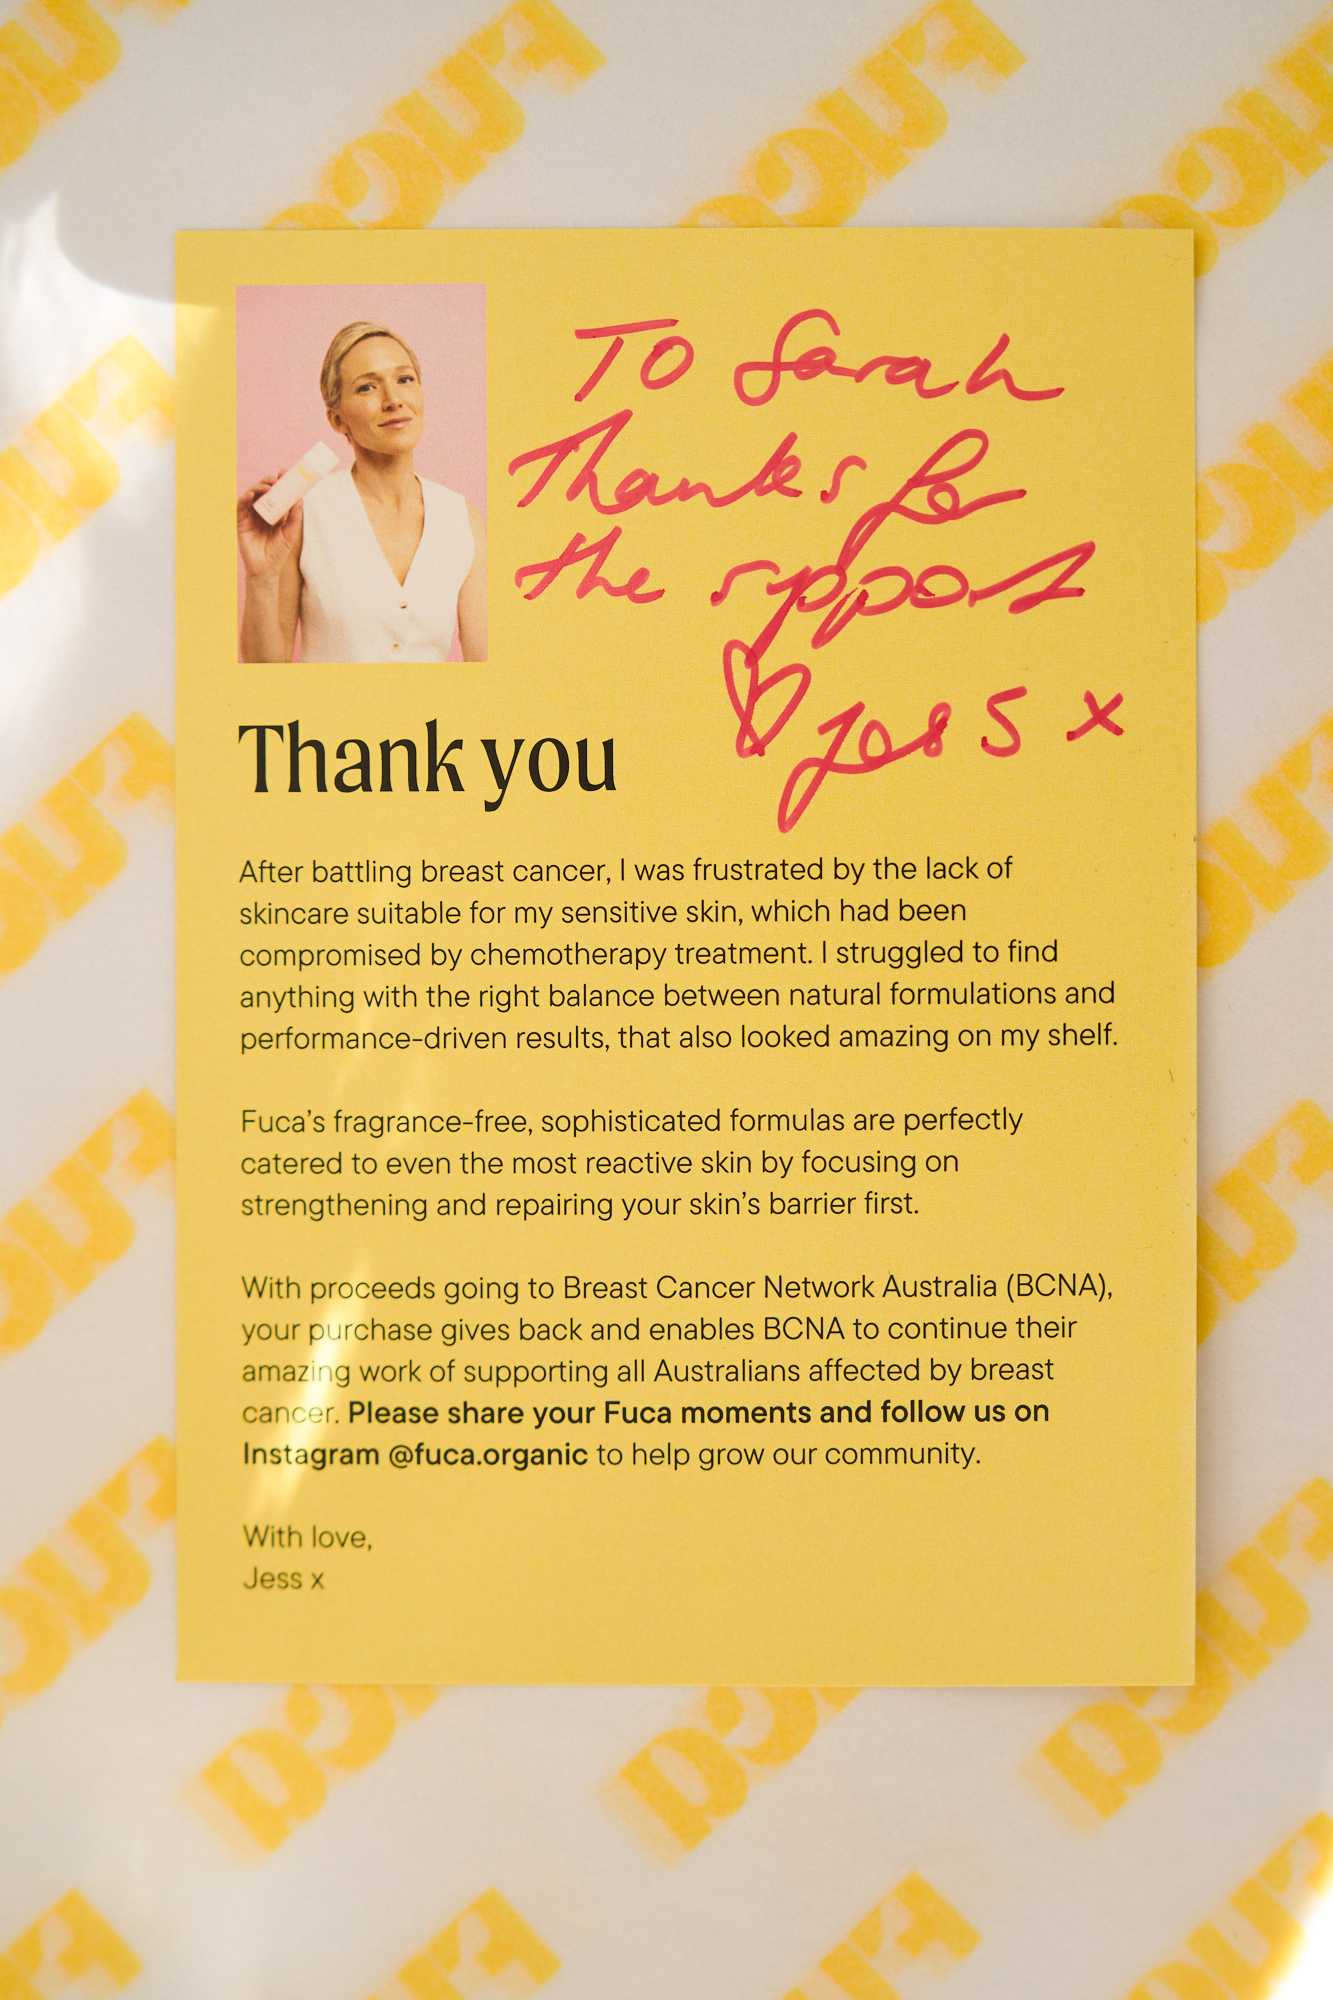 To Sarah
Thanks for
the support
Jess x
Thank you
After battling breast cancer, I was frustrated by the lack of
skincare suitable for my sensitive skin, which had been
compromised by chemotherapy treatment. I struggled to find
anything with the right balance between natural formulations and
performance-driven results, that also looked amazing on my shelf.
Fuca’s fragrance-free, sophisticated formulas are perfectly
catered to even the most reactive skin by focusing on
strengthening and repairing your skin’s barrier first.
With proceeds going to Breast Cancer Network Australia (BCNA),
your purchase gives back and enables BCNA to continue their
amazing work of supporting all Australians affected by breast
cancer. Please share your Fuca moments and follow us on
Instagram @fuca.organic to help grow our community.
With love,
Jess x
fuca
fuca
fuca
fuca
fuca
fuca
fuca
fuca